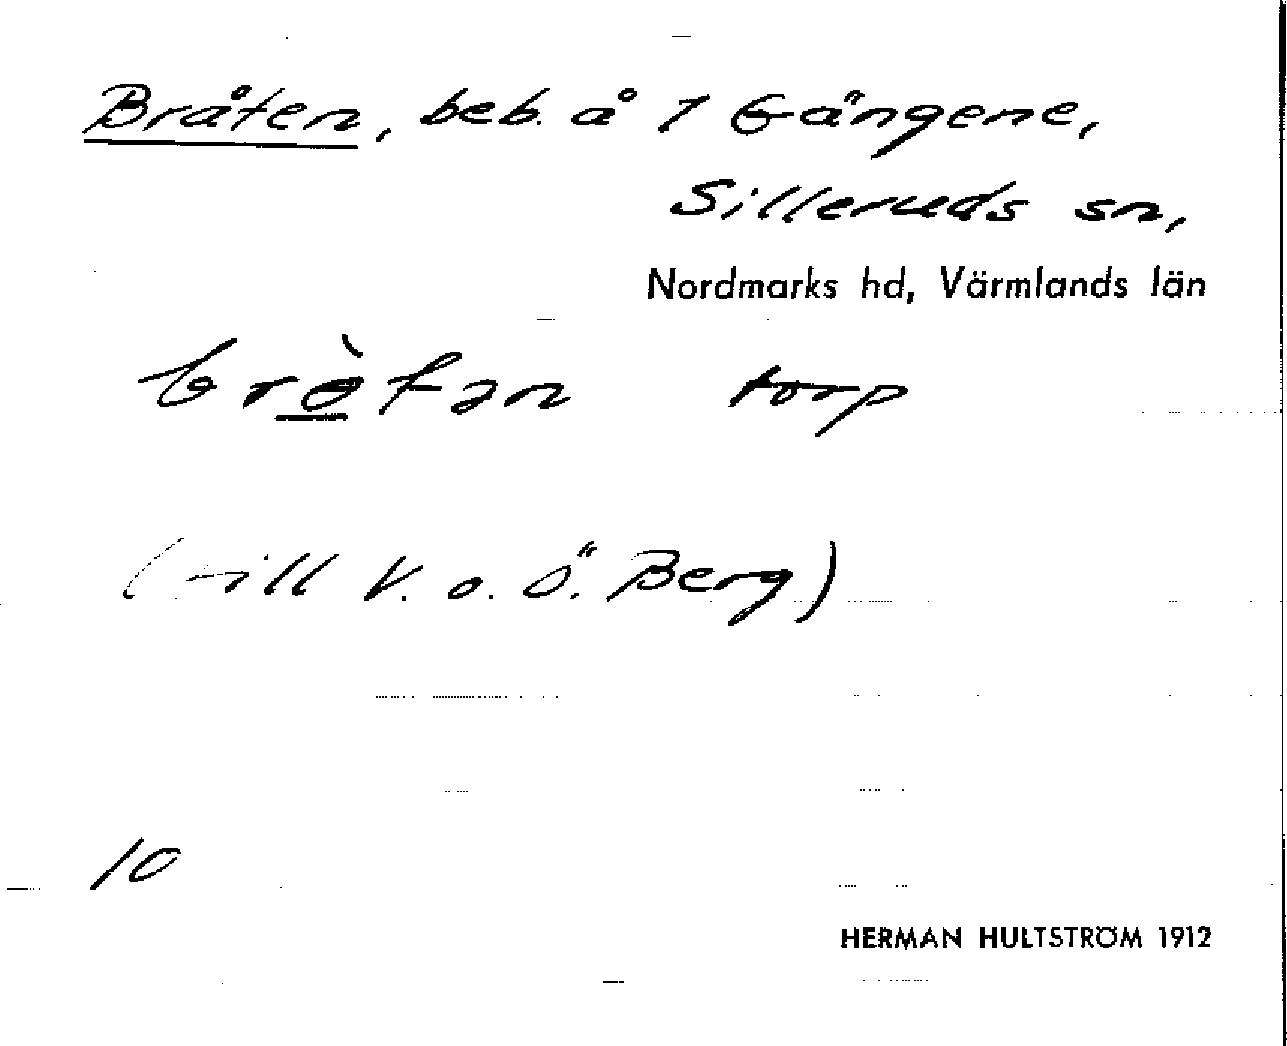 Bråten, beb. å 1 Gängene,
Silleruds sn,
Nordmarks hd, Värmlands län
brò̲tan torp
(till V. o. Ö. Berg)
10
HERMAN HULTSTRÖM 1912